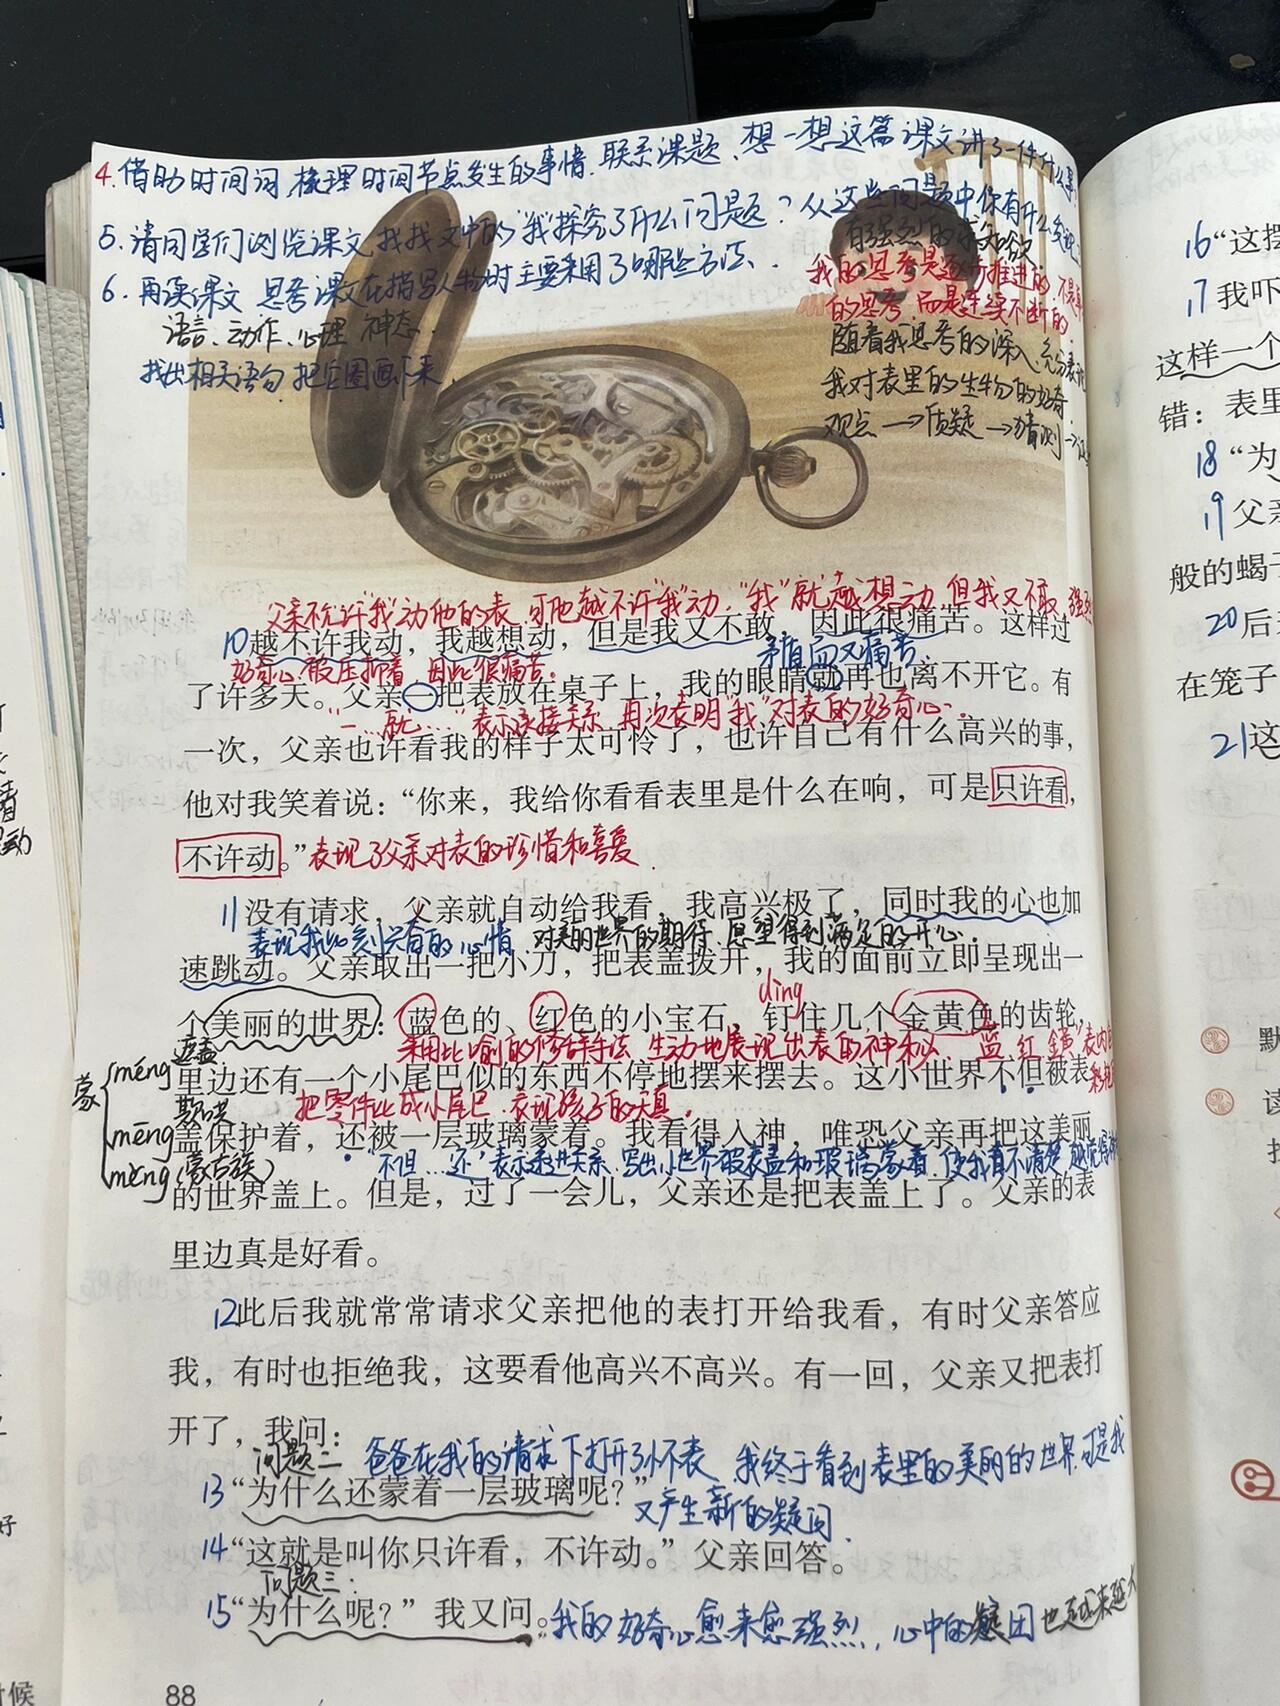 4.借助时间词,梳理时间节点发生的事情.联系课题、想一想这篇课文讲了一件什么事
5.请同学们浏览课文,找找文中的“我”探究了什么问题?从这些问题中你有什么发现
有强烈的求知欲
6.再读课文 思考课文在描写人物时主要采用了哪些方法.
我的思考是逐步推进的,不是
语言、动作、心理 神态.
的思考,而是连续不断的
随着我思考的深入,充分表现
找出相关语句,把它圈画下来.
我对表里的生物的好奇
观点→质疑→猜测→
父亲不允许“我”动他的表.可他越不许“我”动,“我”就“越”想动,但我又不敢,强烈
10越不许我动,我越想动,但是我又不敢,因此很痛苦。这样过
好奇心被压抑着,因此很痛苦.
矛盾而又痛苦.
了许多天。父亲一把表放在桌子上,我的眼睛就再也离不开它。有
“一…就…”表示承接关系,再次表明“我”对表的好奇心.
一次,父亲也许看我的样子太可怜了,也许自己有什么高兴的事,
他对我笑着说:“你来,我给你看看表里是什么在响,可是只许看,
不许动。”表现了父亲对表的珍惜和喜爱.
11没有请求,父亲就自动给我看,我高兴极了,同时我的心也加
表现我此刻兴奋的心情.对美的世界的期待,愿望得到满足的开心.
速跳动。父亲取出一把小刀,把表盖拨开,我的面前立即呈现出一
dìng
个美丽的世界:蓝色的、红色的小宝石,钉住几个金黄色的齿轮,
遮盖
采用比喻的修辞手法 生动地展现出表的神秘. 蓝 红 金黄
蒙 méng 里边还有一个小尾巴似的东西不停地摆来摆去。这小世界不但被表
欺哄
把零件比成小尾巴.表现孩子的天真.
mēng 盖保护着,还被一层玻璃蒙着。我看得入神,唯恐父亲再把这美丽
měng(蒙古族)
“不但…还”表示递进关系.写出小世界被表盖和玻璃蒙着,使我看不清楚
的世界盖上。但是,过了一会儿,父亲还是把表盖上了。父亲的表
里边真是好看。
12此后我就常常请求父亲把他的表打开给我看,有时父亲答应
我,有时也拒绝我,这要看他高兴不高兴。有一回,父亲又把表打
开了,我问:
问题二 爸爸在我的请求下打开了怀表 我终于看到表里的美丽的世界.可是我
13“为什么还蒙着一层玻璃呢?”
又产生新的疑问.
14“这就是叫你只许看,不许动。”父亲回答。
问题三:
15“为什么呢?”我又问。我的好奇心愈来愈强烈,心中的疑团也越来越大
88
16“这摆
17我吓
这样一个
错:表里
18“为
19父亲
般的蝎子
20后
在笼子
21这
默
读